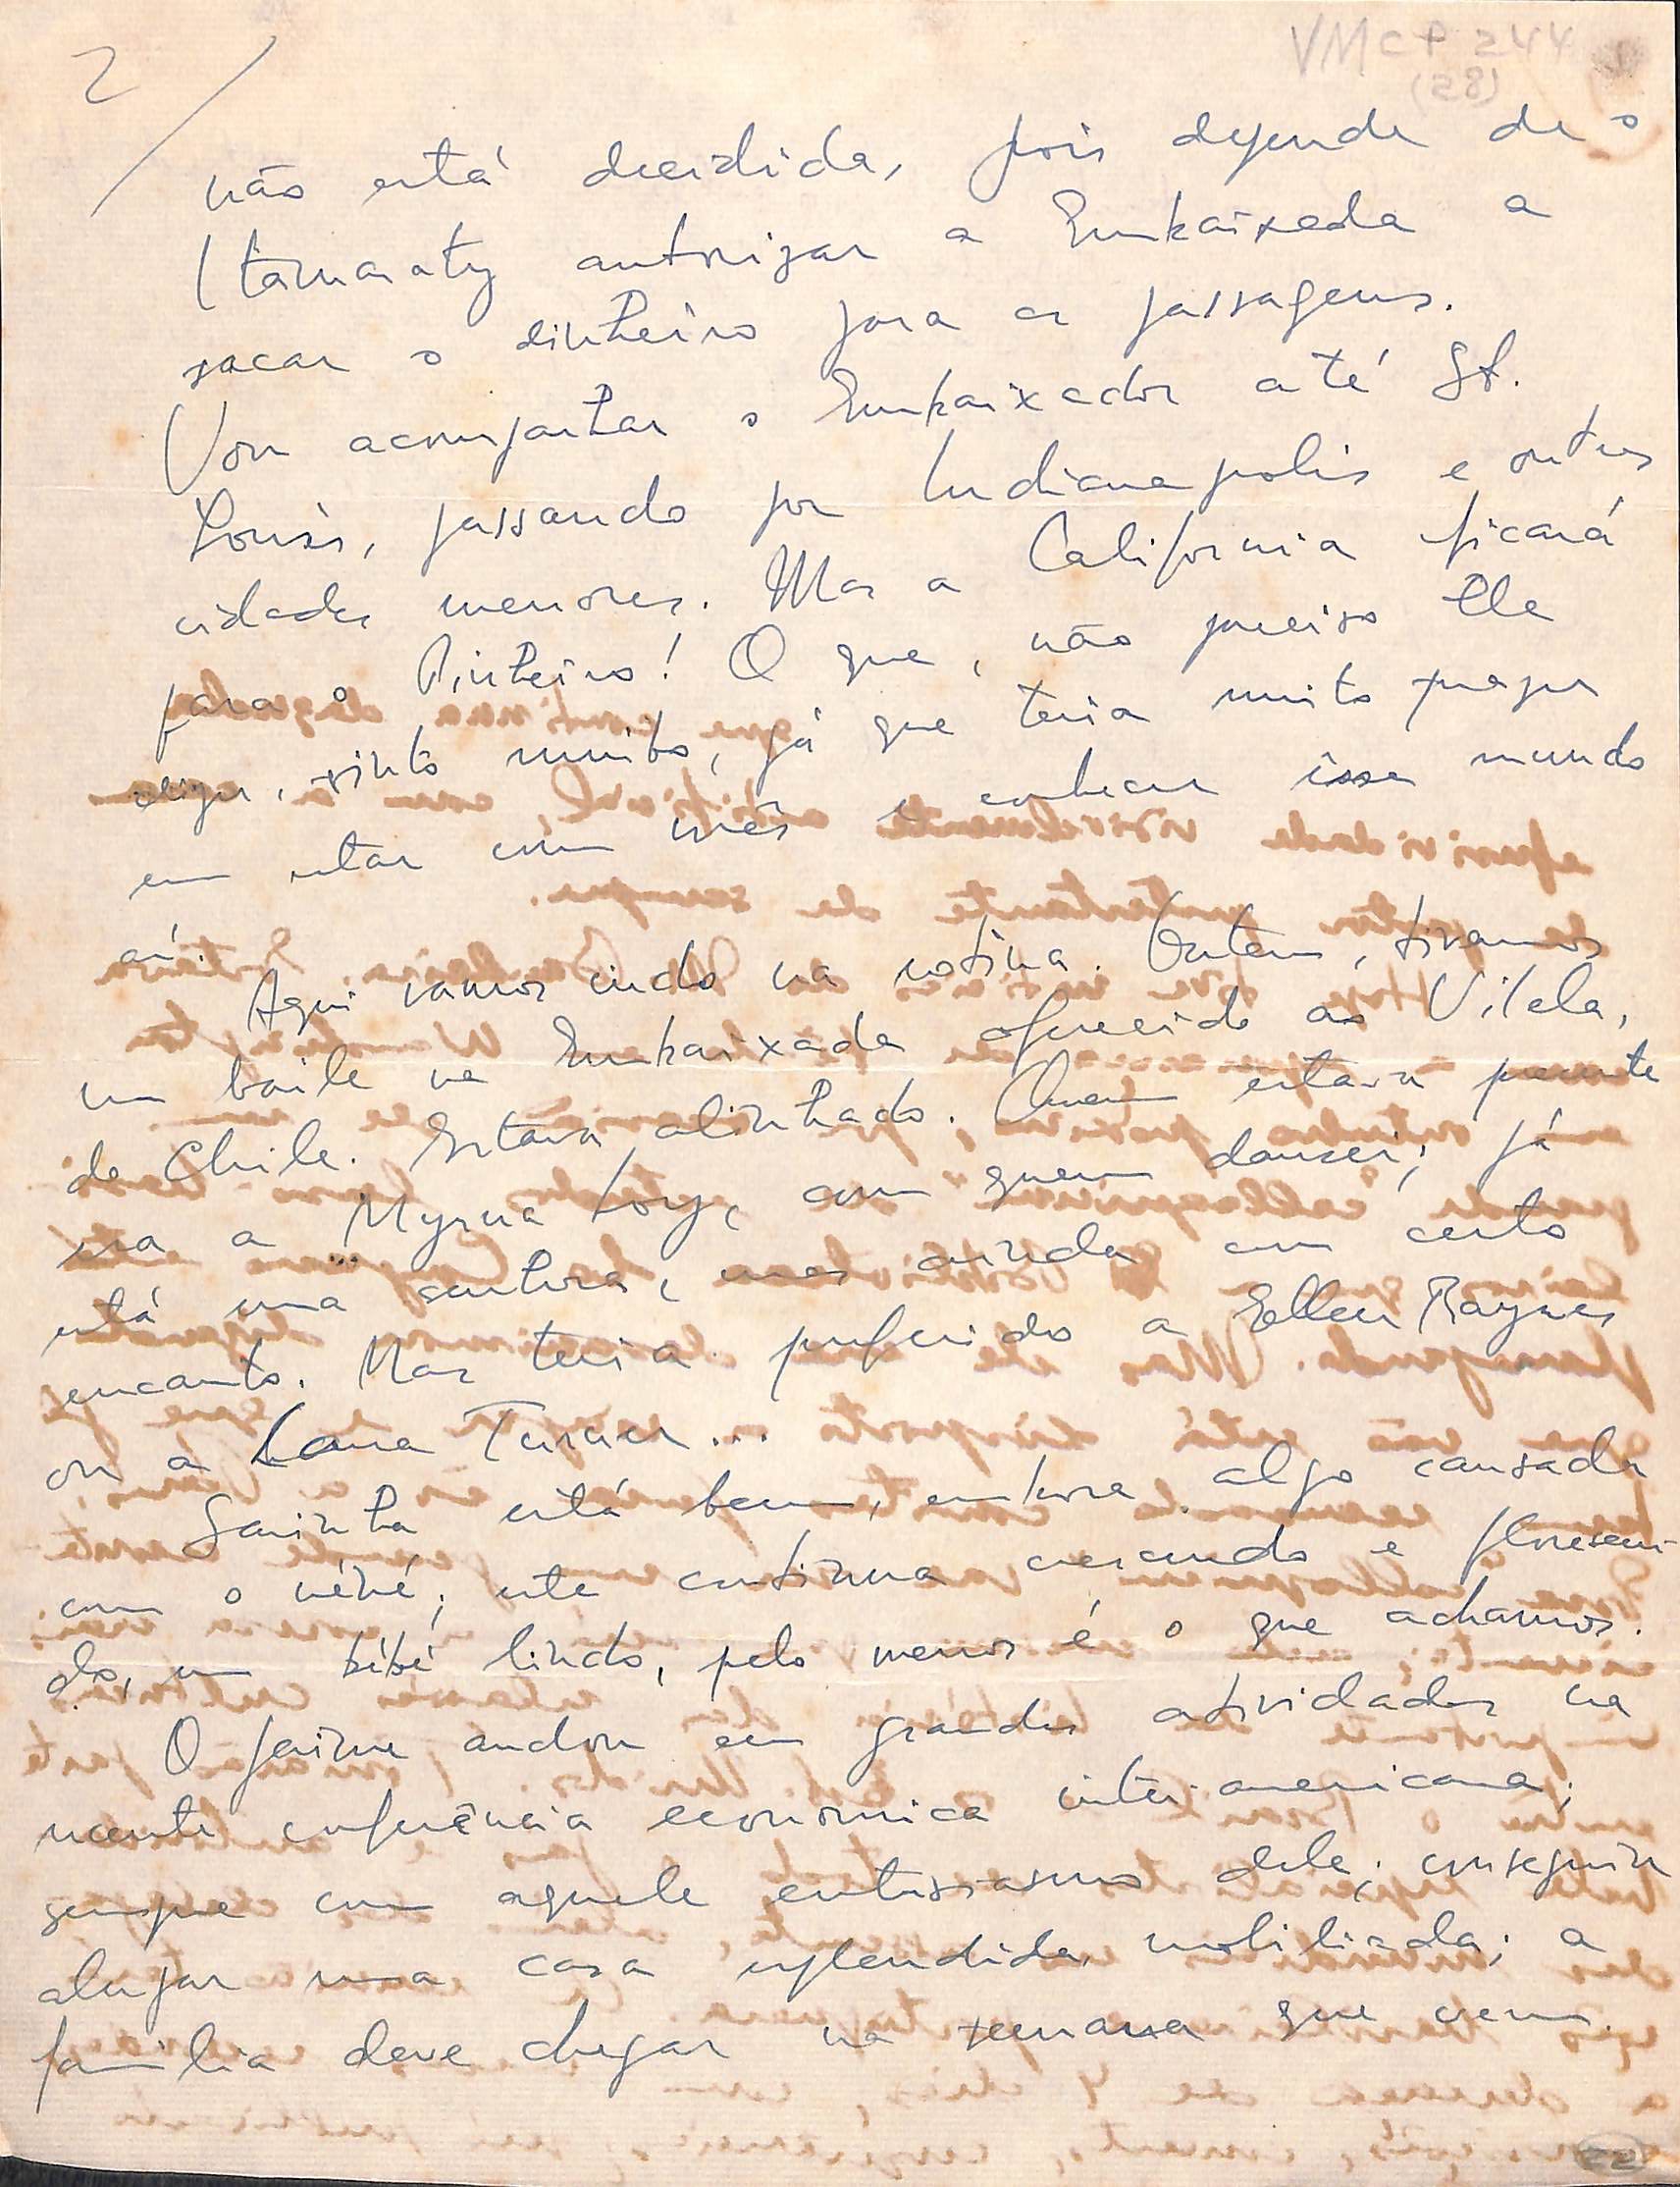 VMCP 244
(28)
2
não está decidida, pois depende de o
Itamaraty autorizar a Embaixada a
sacar o dinheiro para as passagens.
Vou acompanhar o Embaixador até St.
Louis, passando por Indianapolis e outras
cidades menores. Mas a California ficará
para o Pinheiro! O que, não preciso lhe
dizer, sinto muito, já que teria muito prazer
em estar com vocês e conhecer êsse mundo
aí.
Aqui vamos indo na rotina. Ontem, tivemos
um baile na Embaixada oferecido ao Vilela,
do Chile. Estava alinhado. Quem estava presente
era a Myrna Loy, com quem dancei; já
está uma senhora, mas ainda com certo
encanto. Mas teria preferido a Ellen Raynes
ou a Lana Turner...
Sarinha está bem, embora algo cansada
com o nênê; este continua crescendo e florescen-
do, um bébé lindo, pelo menos é o que achamos.
O Jaime andou em grandes atividades na
recente conferência economica inter-americana;
sempre com aquele entusiasmo dele; conseguiu
alugar uma casa esplendida mobiliada; a
familia deve chegar na semana que vem.
22